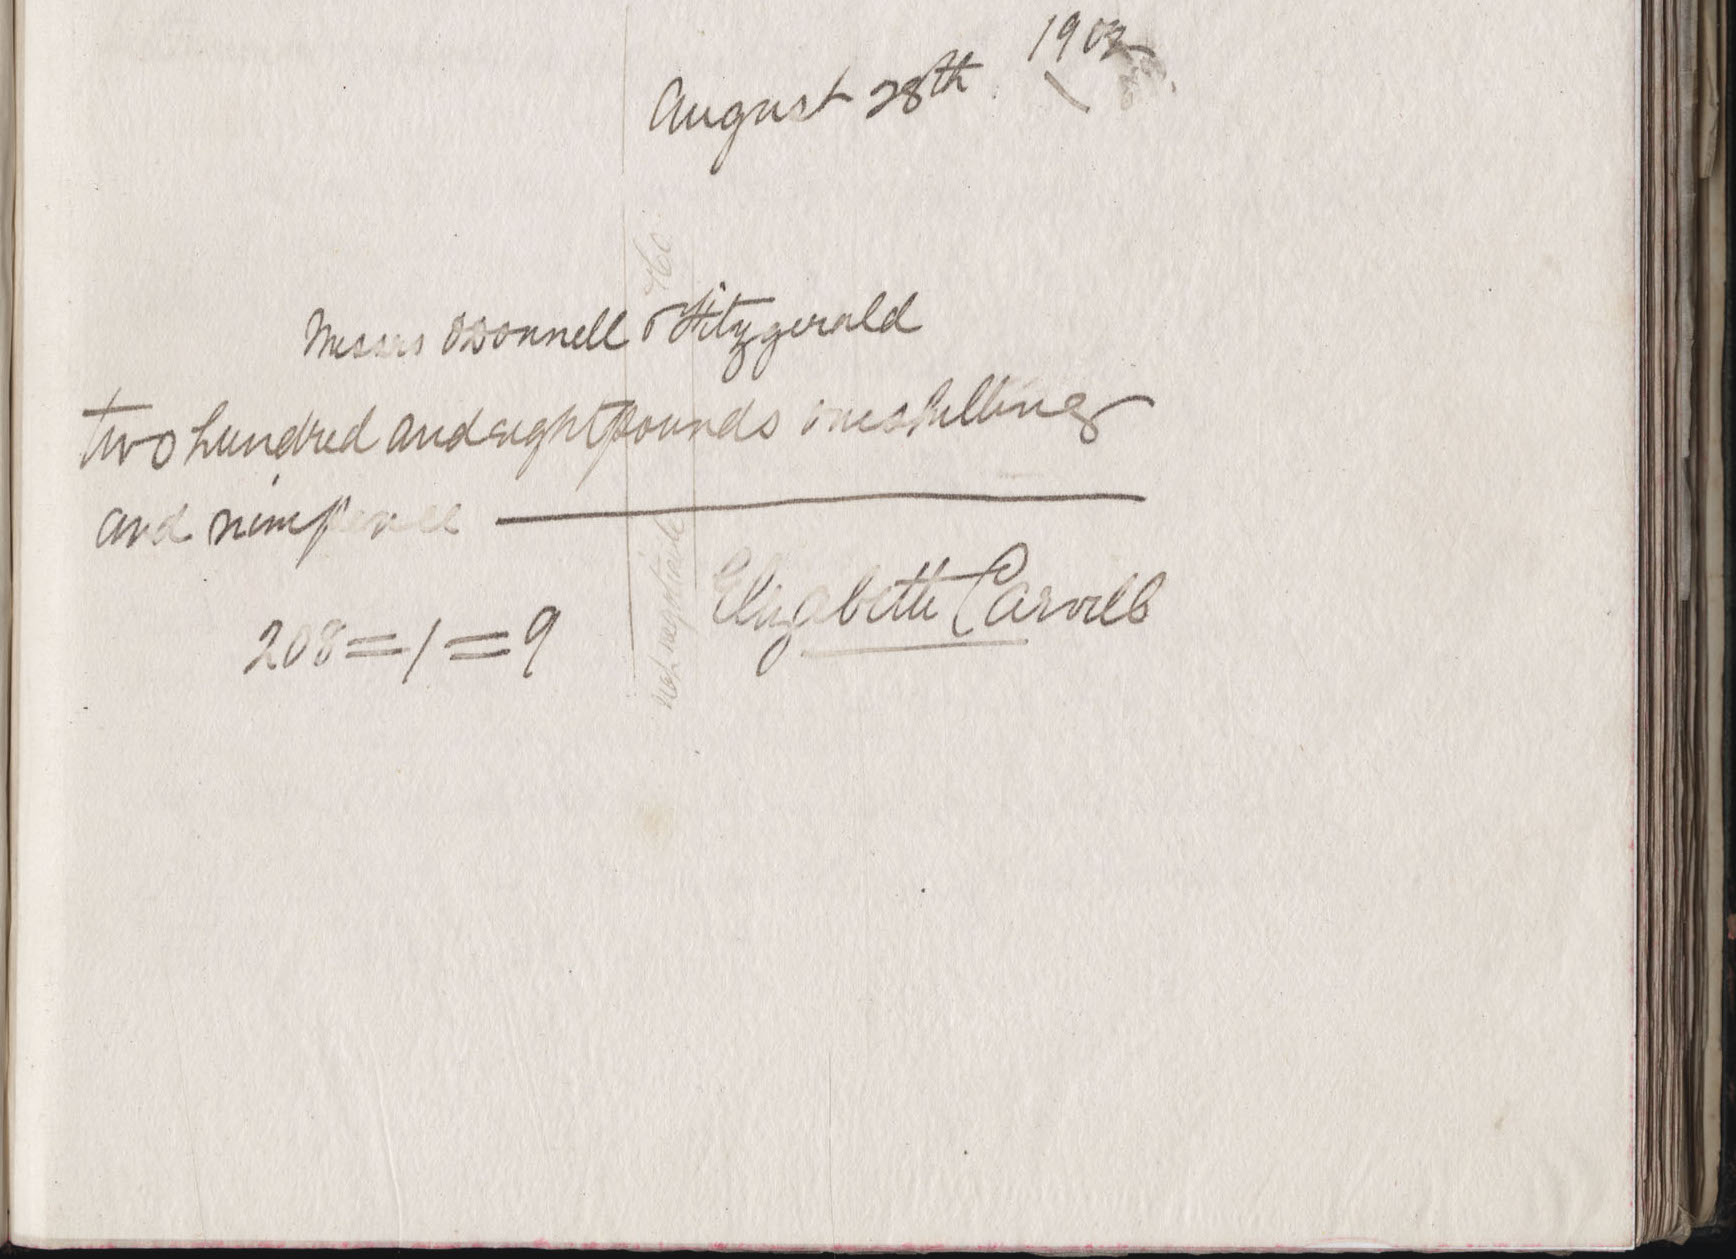 August 28th 1902
Messrs O'Donnell & Fitzgerald
two hundred and eight pounds one shilling
and ninepence
208=1=9
Elizabeth Carvill
not negotiable
&Co